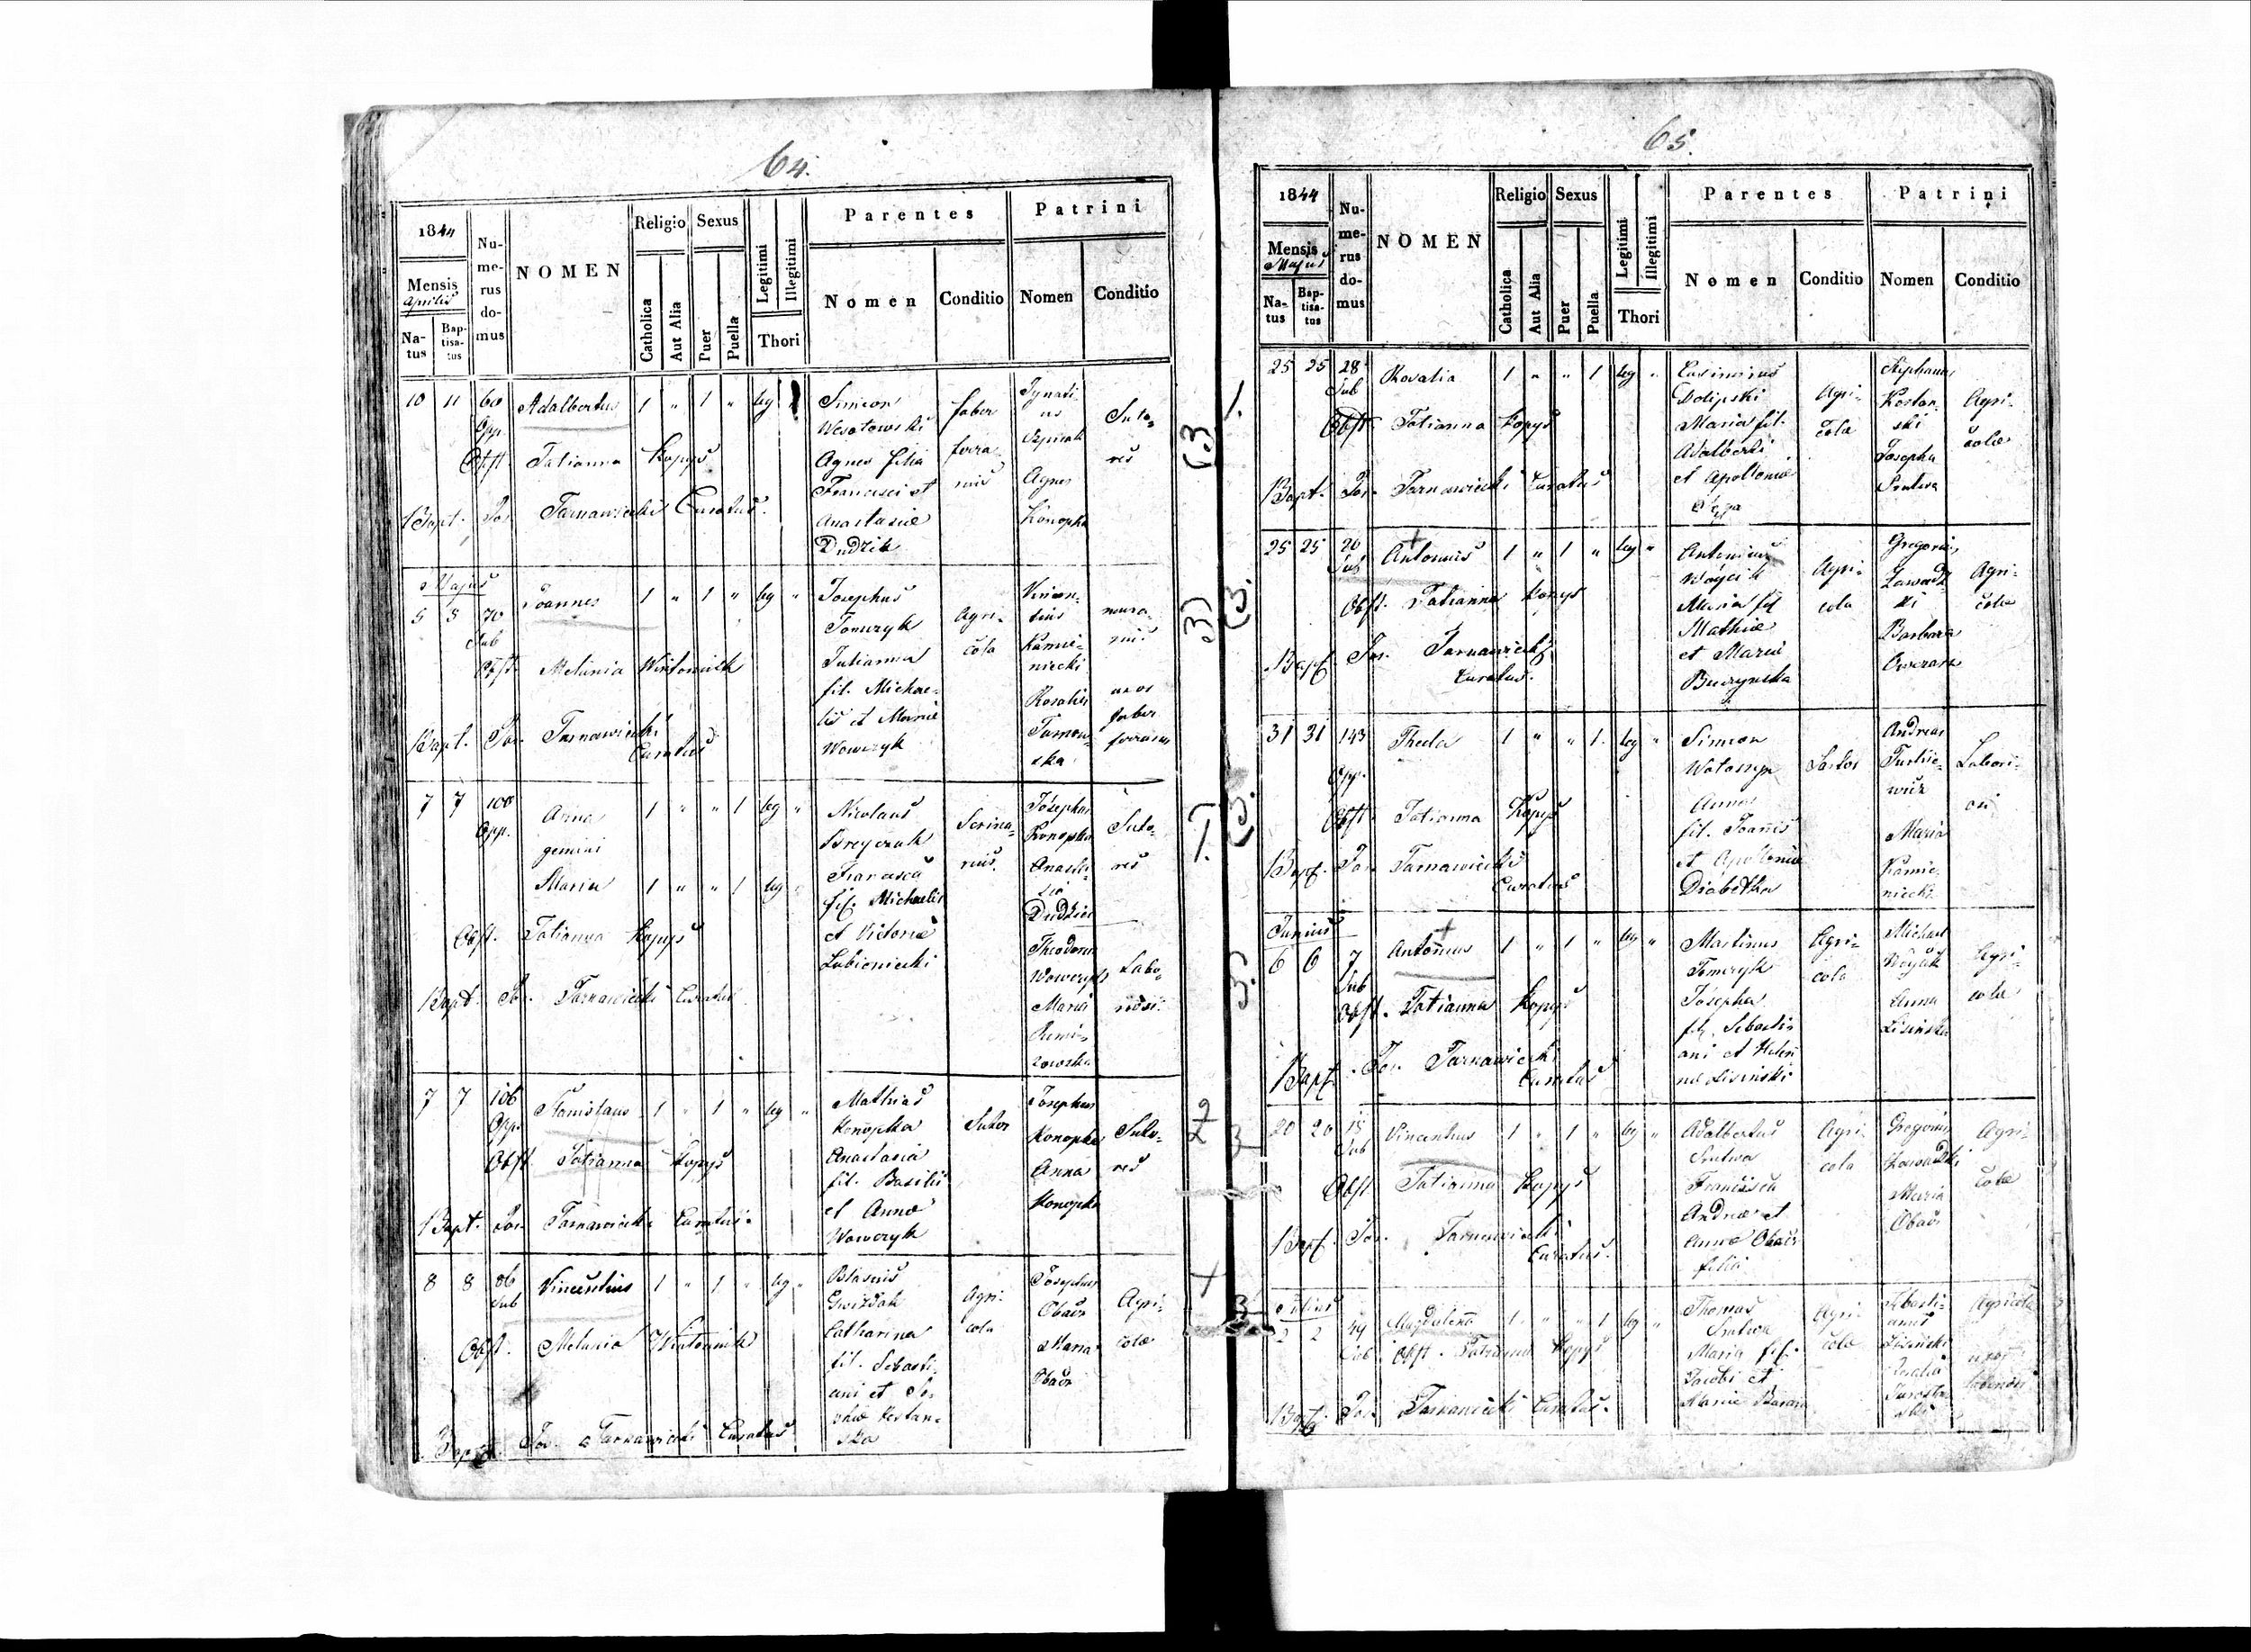 64.
1844
Mensis
Aprilis
Na-
tus
Bap-
tisa-
tus
Nu-
me-
rus
do-
mus
NOMEN
Religio
Catholica
Aut Alia
Sexus
Puer
Puella
Legitimi
Illegitimi
Thori
Parentes
Nomen
Conditio
Patrini
Nomen
Conditio
10 11 60 Adalbertus 1 " 1 " leg "
Opp.
Obst. Tatianna Kopys
Bapt. Jos. Tarnawiecki Curatus.
Simeon
Wesołowski
Agnes filia
Francisci et
Anastasiae
Dudzik
faber
ferra-
rius
Ignati-
us
Agnes
Konopka
Suto-
res
Majus
5 5 70 Joannes 1 " 1 " leg "
Sub
Obst. Melania Wintoniak
Bapt. Jos. Tarnawiecki
Curatus
Josephus
Tomczyk
Julianna
fil. Michae-
lis et Mariae
Wawczyk
Agri-
cola
Vincen-
tius
Kamie-
niecki
Rosalia
Tarnow-
ska
mura-
rius
uxor
faber
ferrarius
7 7 108 Anna 1 " " 1 leg "
Opp. gemini
Maria 1 " " 1 leg "
Obst. Tatianna Kopys
Bapt. Jos. Tarnawiecki Curatus
Nicolaus
Francisca
fil. Michaelis
et Victoriae
Lubieniecki
Scrina-
rius.
Josephus
Konopka
Anasta-
sia
Dudzik
Suto-
res
Theodorus
Wawczyk
Maria
Remi-
zowska
Labo-
riosi.
7 7 106 Stanislaus 1 " 1 " leg "
Opp.
Obst. Tatianna Kopys
Bapt. Jos. Tarnawiecki Curatus.
Mathias
Konopka
Anastasia
fil. Basilii
et Annae
Wawczyk
Sutor
Josephus
Konopka
Anna
Konopka
Suto-
res
8 8 86 Vincentius 1 " 1 " leg "
Sub
Obst. Melania Wintoniak
Bapt. Jos. Tarnawiecki Curatus
Blasius
Gwizdak
Catharina
fil. Sebasti-
ani et So-
phiae Kostan-
ska
Agri-
cola
Josephus
Obacz
Maria
Obacz
Agri-
colae
65.
1844
Mensis
Majus
Na-
tus
Bap-
tisa-
tus
Nu-
me-
rus
do-
mus
NOMEN
Religio
Catholica
Aut Alia
Sexus
Puer
Puella
Legitimi
Illegitimi
Thori
Parentes
Nomen
Conditio
Patrini
Nomen
Conditio
25 25 28 Rosalia 1 " " 1 leg "
Sub
Obst Tatianna Kopys
Bapt. Jos. Tarnawiecki Curatus
Casimirus
Dolipski
Maria fil.
Adalberti
et Apolloniae
Agri-
cola
Stephanus
Kostan-
ski
Josepha
Srutwa
Agri-
colae
25 25 20 Antonius 1 " 1 " leg "
Sub
Obst. Tatianna Kopys
Bapt. Jos. Tarnawiecki
Curatus.
Antonius
Wóycik
Maria fil
Mathiae
et Mariae
Buczynska
Agri-
cola
Gregorius
Zawadz-
ki
Barbara
Agri-
colae
31 31 143 Thecla 1 " " 1. leg "
Opp.
Obst. Tatianna Kopys
Bapt. Jos. Tarnawiecki
Curatus
Simeon
Anna
fil. Joannis
et Apolloniae
Sartor
Andreas
Maria
Kamie-
niecki
Labori-
osi
Junius
6 6 7 Antonius 1 " 1 " leg "
Sub
Obst. Tatianna Kopys
Bapt. Jos. Tarnawiecki
Curatus
Martinus
Tomczyk
Josepha
fil. Sebasti-
ani et Hele-
nae Lisinski
Agri-
cola
Michael
Wóycik
Anna
Lisinska
Agri-
colae
20 20 15 Vincentius 1 " 1 " leg "
Sub
Obst Tatianna Kopys
Bapt. Jos. Tarnawiecki
Curatus.
Adalbertus
Srutwa
Francisca
Andreae et
Annae Obacz
filia
Agri-
cola
Gregorius
Zawadzki
Maria
Obacz
Agri-
colae
Julius
2 2 49 Magdalena 1 " " 1 leg "
Sub Obst. Tatianna Kopys
Bapt. Jos. Tarnawiecki Curatus.
Thomas
Srutwa
Maria fil.
Jacobi et
Mariae Baran
Agri-
cola
Sebasti-
anus
Lisinski
Agricola
uxor